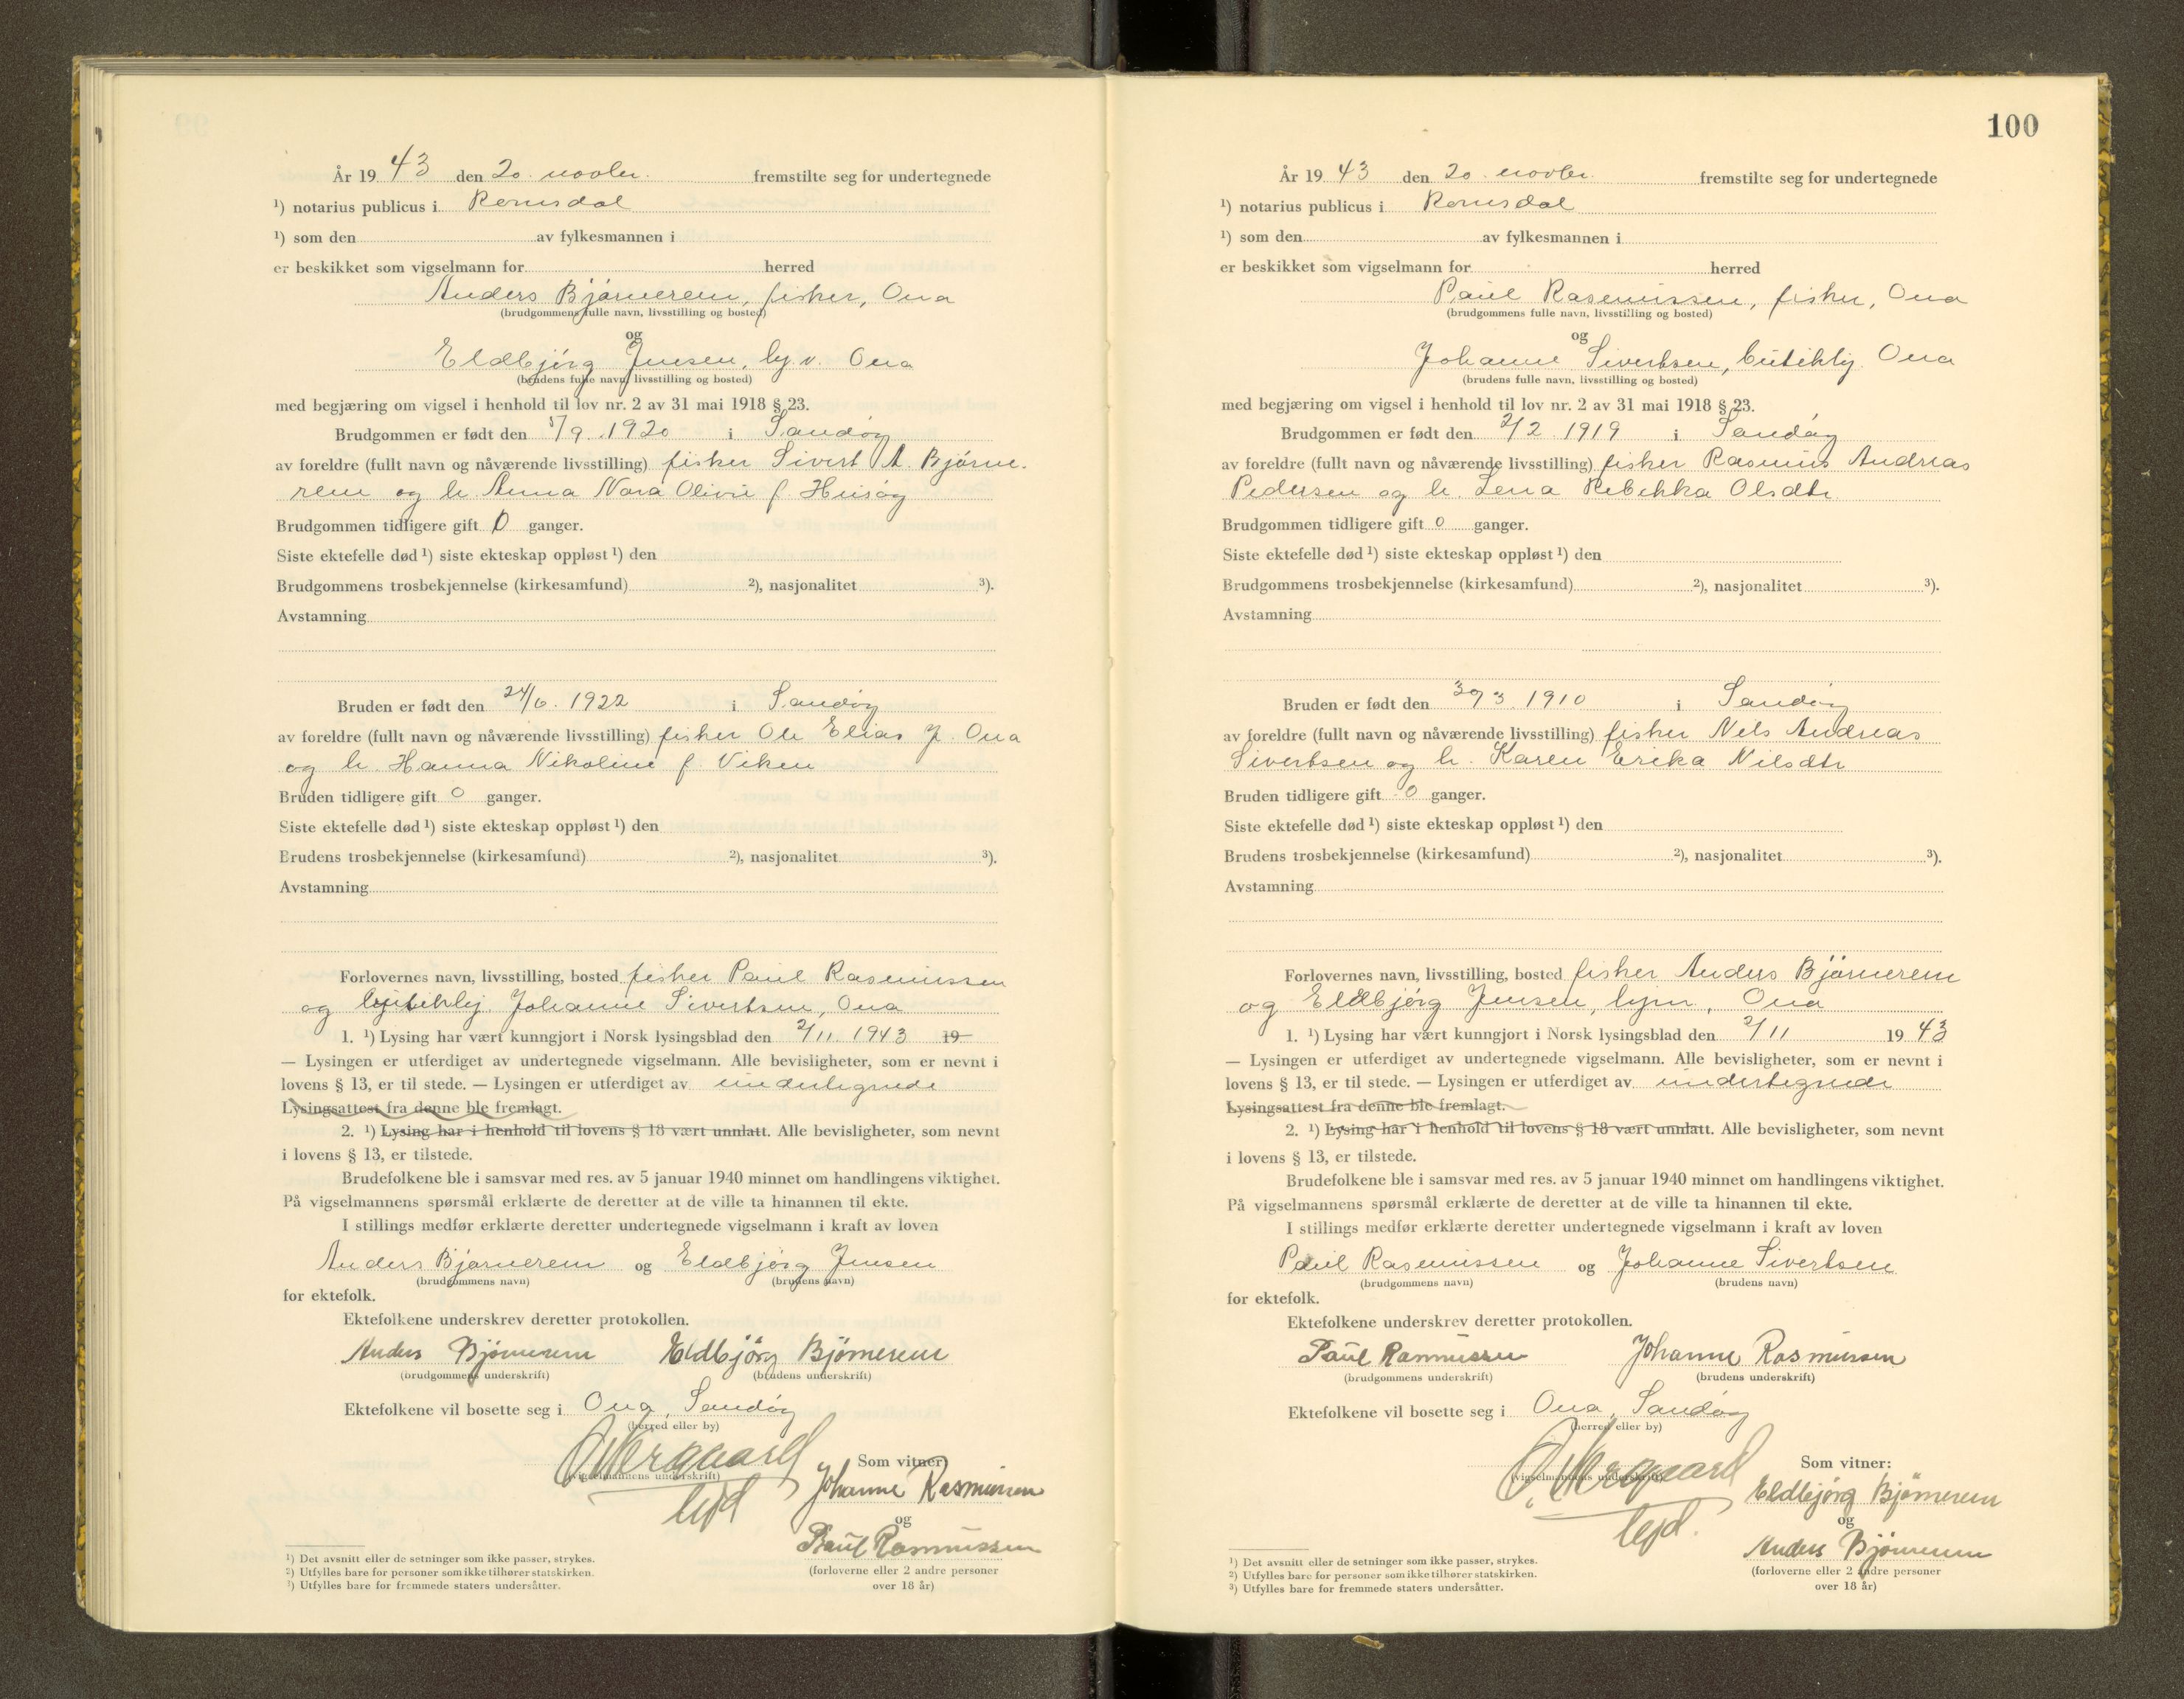 År 19 43 den 20. novbr. fremstilte seg for undertegnede
¹) notarius publicus i Romsdal
¹) som den av fylkesmannen i
er beskikket som vigselmann for herred
Anders Bjørnerem, fisker, Ona
(brudgommens fulle navn, livsstilling og bosted)
og
Eldbjørg Jensen, hj. v. Ona
(brudens fulle navn, livsstilling og bosted)
med begjæring om vigsel i henhold til lov nr. 2 av 31 mai 1918 § 23.
Brudgommen er født den 5/9 1920 i Sandøy
av foreldre (fullt navn og nåværende livsstilling) fisker Sivert A. Bjørne-
rem og h. Anna Nora Olivie f. Husøy
Brudgommen tidligere gift 0 ganger.
Siste ektefelle død ¹) siste ekteskap oppløst ¹) den
Brudgommens trosbekjennelse (kirkesamfund) ²), nasjonalitet ³).
Avstamning
Bruden er født den 24/6. 1922 i Sandøy
av foreldre (fullt navn og nåværende livsstilling) fisker Ole Elias J. Ona
og h. Hanna Nikoline f. Viken
Bruden tidligere gift 0 ganger.
Siste ektefelle død ¹) siste ekteskap oppløst ¹) den
Brudens trosbekjennelse (kirkesamfund) ²), nasjonalitet ³).
Avstamning
Forlovernes navn, livsstilling, bosted fisker Paul Rasmussen
og butikkhj. Johanne Sivertsen, Ona
1. ¹) Lysing har vært kunngjort i Norsk lysingsblad den 2/11 1943 19
— Lysingen er utferdiget av undertegnede vigselmann. Alle bevisligheter, som er nevnt i
lovens § 13, er til stede. — Lysingen er utferdiget av undertegnede
Lysingsattest fra denne ble fremlagt.
2. ¹) Lysing har i henhold til lovens § 18 vært unnlatt. Alle bevisligheter, som nevnt
i lovens § 13, er tilstede.
Brudefolkene ble i samsvar med res. av 5 januar 1940 minnet om handlingens viktighet.
På vigselmannens spørsmål erklærte de deretter at de ville ta hinannen til ekte.
I stillings medfør erklærte deretter undertegnede vigselmann i kraft av loven
Anders Bjørnerem og Eldbjørg Jensen
(brudgommens navn) (brudens navn)
for ektefolk.
Ektefolkene underskrev deretter protokollen.
Anders Bjørnerem Eldbjörg Bjørnerem
(brudgommens underskrift) (brudens underskrift)
Ektefolkene vil bosette seg i Ona, Sandøy
(herred eller by)
Som vitner:
(vigselmannens underskrift)
Johanne Rasmussen
og
Paul Rasmussen
(forloverne eller 2 andre personer
over 18 år)
¹) Det avsnitt eller de setninger som ikke passer, strykes.
²) Utfylles bare for personer som ikke tilhører statskirken.
³) Utfylles bare for fremmede staters undersåtter.
100
År 19 43 den 20. novbr. fremstilte seg for undertegnede
¹) notarius publicus i Romsdal
¹) som den av fylkesmannen i
er beskikket som vigselmann for herred
Paul Rasmussen, fisker, Ona
(brudgommens fulle navn, livsstilling og bosted)
og
Johanne Sivertsen, butikhj. Ona
(brudens fulle navn, livsstilling og bosted)
med begjæring om vigsel i henhold til lov nr. 2 av 31 mai 1918 § 23.
Brudgommen er født den 2/2 1919 i Sandøy
av foreldre (fullt navn og nåværende livsstilling) fisker Rasmus Andreas
Pedersen og h. Lena Rebekka Olsdtr
Brudgommen tidligere gift 0 ganger.
Siste ektefelle død ¹) siste ekteskap oppløst ¹) den
Brudgommens trosbekjennelse (kirkesamfund) ²), nasjonalitet ³).
Avstamning
Bruden er født den 30/3. 1910 i Sandøy
av foreldre (fullt navn og nåværende livsstilling) fisker Nels Andreas
Sivertsen og h. Karen Erika Nilsdtr
Bruden tidligere gift 0 ganger.
Siste ektefelle død ¹) siste ekteskap oppløst ¹) den
Brudens trosbekjennelse (kirkesamfund) ²), nasjonalitet ³).
Avstamning
Forlovernes navn, livsstilling, bosted fisker Anders Bjørnerem
og Eldbjørg Jensen, hjv., Ona
1. ¹) Lysing har vært kunngjort i Norsk lysingsblad den 2/11 19 43
— Lysingen er utferdiget av undertegnede vigselmann. Alle bevisligheter, som er nevnt i
lovens § 13, er til stede. — Lysingen er utferdiget av undertegnede
Lysingsattest fra denne ble fremlagt.
2. ¹) Lysing har i henhold til lovens § 18 vært unnlatt. Alle bevisligheter, som nevnt
i lovens § 13, er tilstede.
Brudefolkene ble i samsvar med res. av 5 januar 1940 minnet om handlingens viktighet.
På vigselmannens spørsmål erklærte de deretter at de ville ta hinannen til ekte.
I stillings medfør erklærte deretter undertegnede vigselmann i kraft av loven
Paul Rasmussen og Johanne Sivertsen
(brudgommens navn) (brudens navn)
for ektefolk.
Ektefolkene underskrev deretter protokollen.
Paul Rasmussen Johanne Rasmussen
(brudgommens underskrift) (brudens underskrift)
Ektefolkene vil bosette seg i Ona, Sandøy
(herred eller by)
Som vitner:
(vigselmannens underskrift)
Eldbjörg Bjørnerem
og
Anders Bjørnerem
(forloverne eller 2 andre personer
over 18 år)
¹) Det avsnitt eller de setninger som ikke passer, strykes.
²) Utfylles bare for personer som ikke tilhører statskirken.
³) Utfylles bare for fremmede staters undersåtter.